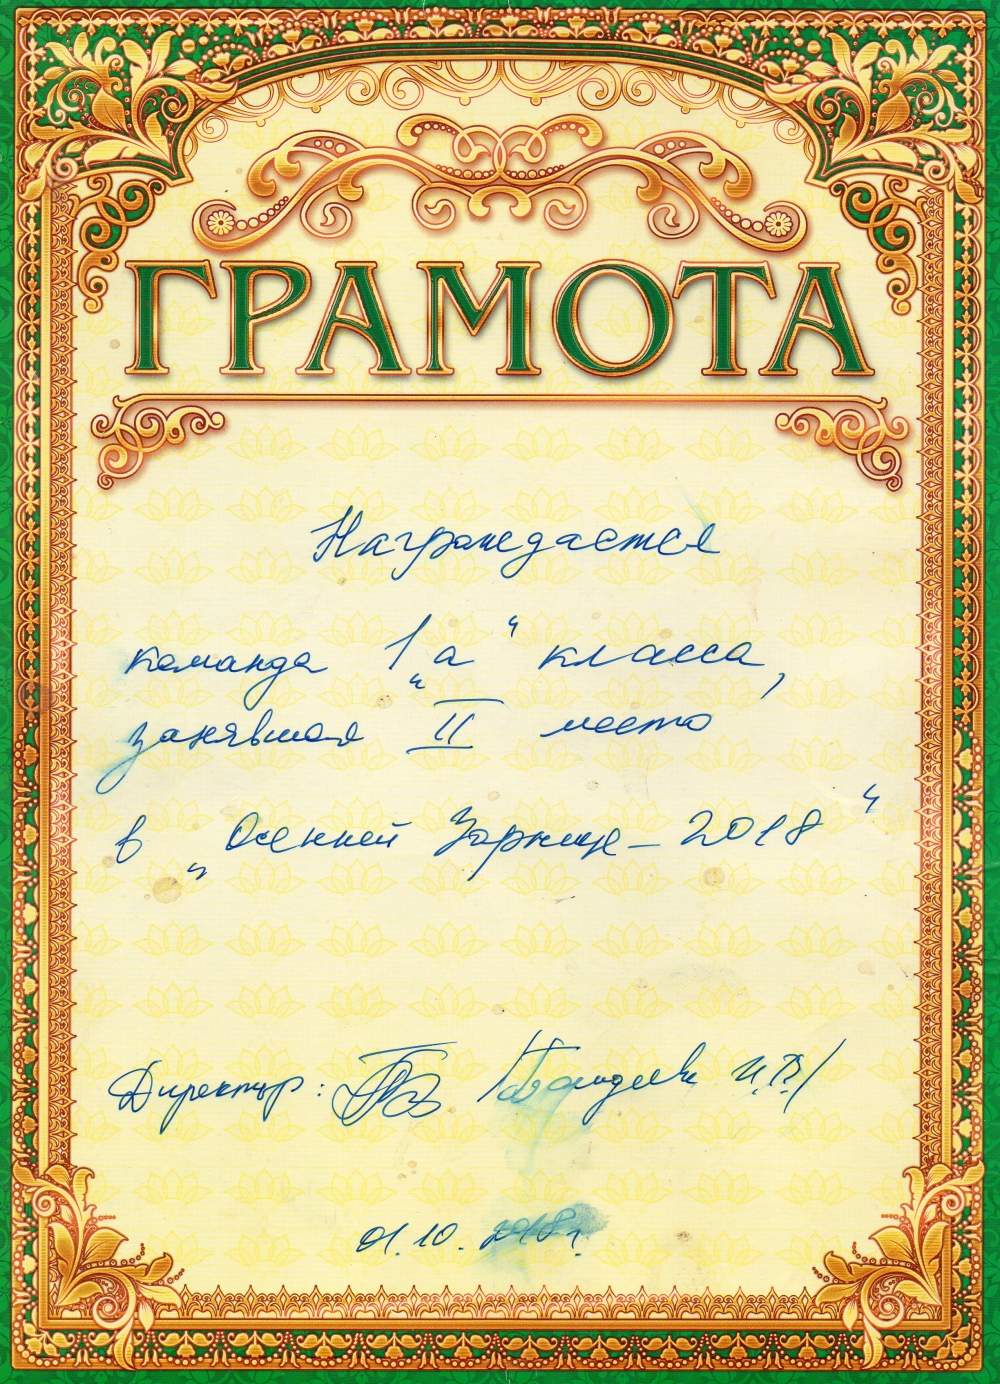 ГРАМОТА
Награждается
команда 1 „а“ класса,
занявшая II место
в „Осенней Зарнице - 2018“
Директор: И.В./
01.10.2018г.